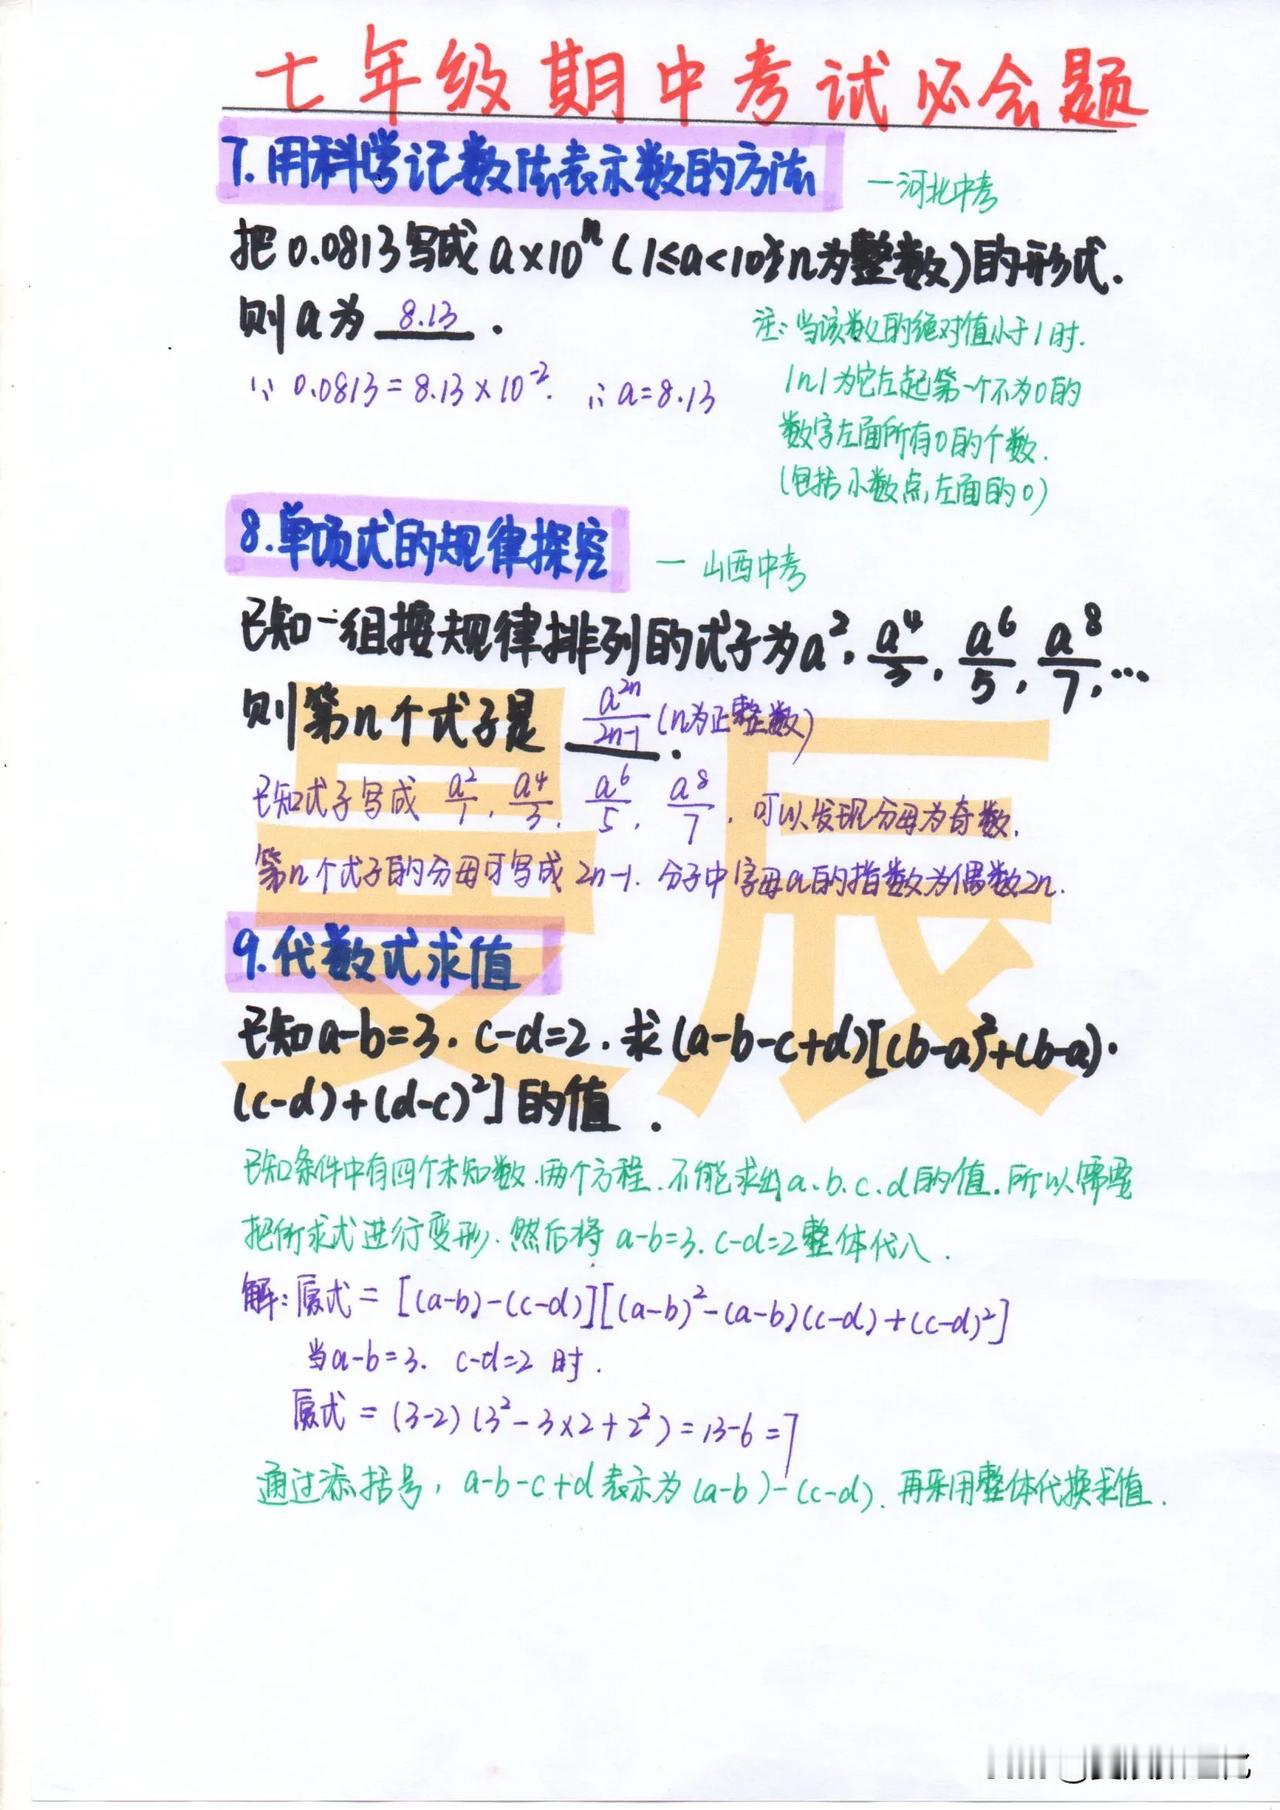 七年级期中考试必会题
7.用科学记数法表示数的方法 —河北中考
把0.0813写成a×10ⁿ(1≤a<10,n为整数)的形式.
则a为 8.13 .
注:当该数的绝对值小于1时.
∵0.0813=8.13×10⁻². ∴a=8.13
|n|为它左起第一个不为0的
数字左面所有0的个数.
(包括小数点左面的0)
8.单项式的规律探究 —山西中考
已知一组按规律排列的式子为a², a⁴/3, a⁶/5, a⁸/7, …
则第n个式子是 a²ⁿ/2n-1 (n为正整数) .
已知式子写成 a²/1, a⁴/3, a⁶/5, a⁸/7, 可以发现分母为奇数,
第n个式子的分母可写成2n-1. 分子中字母a的指数为偶数2n.
9.代数式求值
已知a-b=3. c-d=2. 求(a-b-c+d)[(b-a)²+(b-a)·
(c-d)+(d-c)²]的值.
已知条件中有四个未知数.两个方程.不能求出a、b、c、d的值.所以需要
把所求式进行变形.然后将a-b=3. c-d=2整体代入.
解:原式=[(a-b)-(c-d)][(a-b)²-(a-b)(c-d)+(c-d)²]
当a-b=3. c-d=2时.
原式=(3-2)(3²-3×2+2²)=13-6=7
通过添括号,a-b-c+d表示为(a-b)-(c-d).再采用整体代换求值.
曼辰